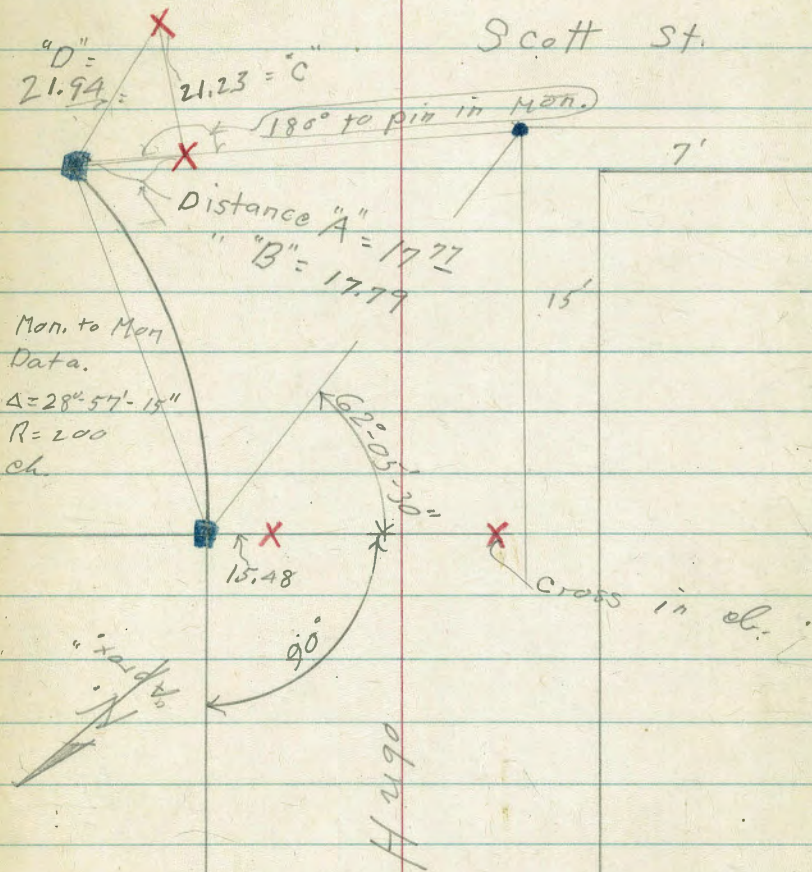 Scott St.
"D"=
21.94
21.23 = "C"
180° to pin in Mon.
7'
Distance "A" = 17 77
" "B" = 17.79
15'
Mon. to Mon
Data.
Δ=28°-57'-15"
R=200
ch.
62°-05'-30"
15.48
Cross in cb.
90°
"Approx."
N.
Hugo